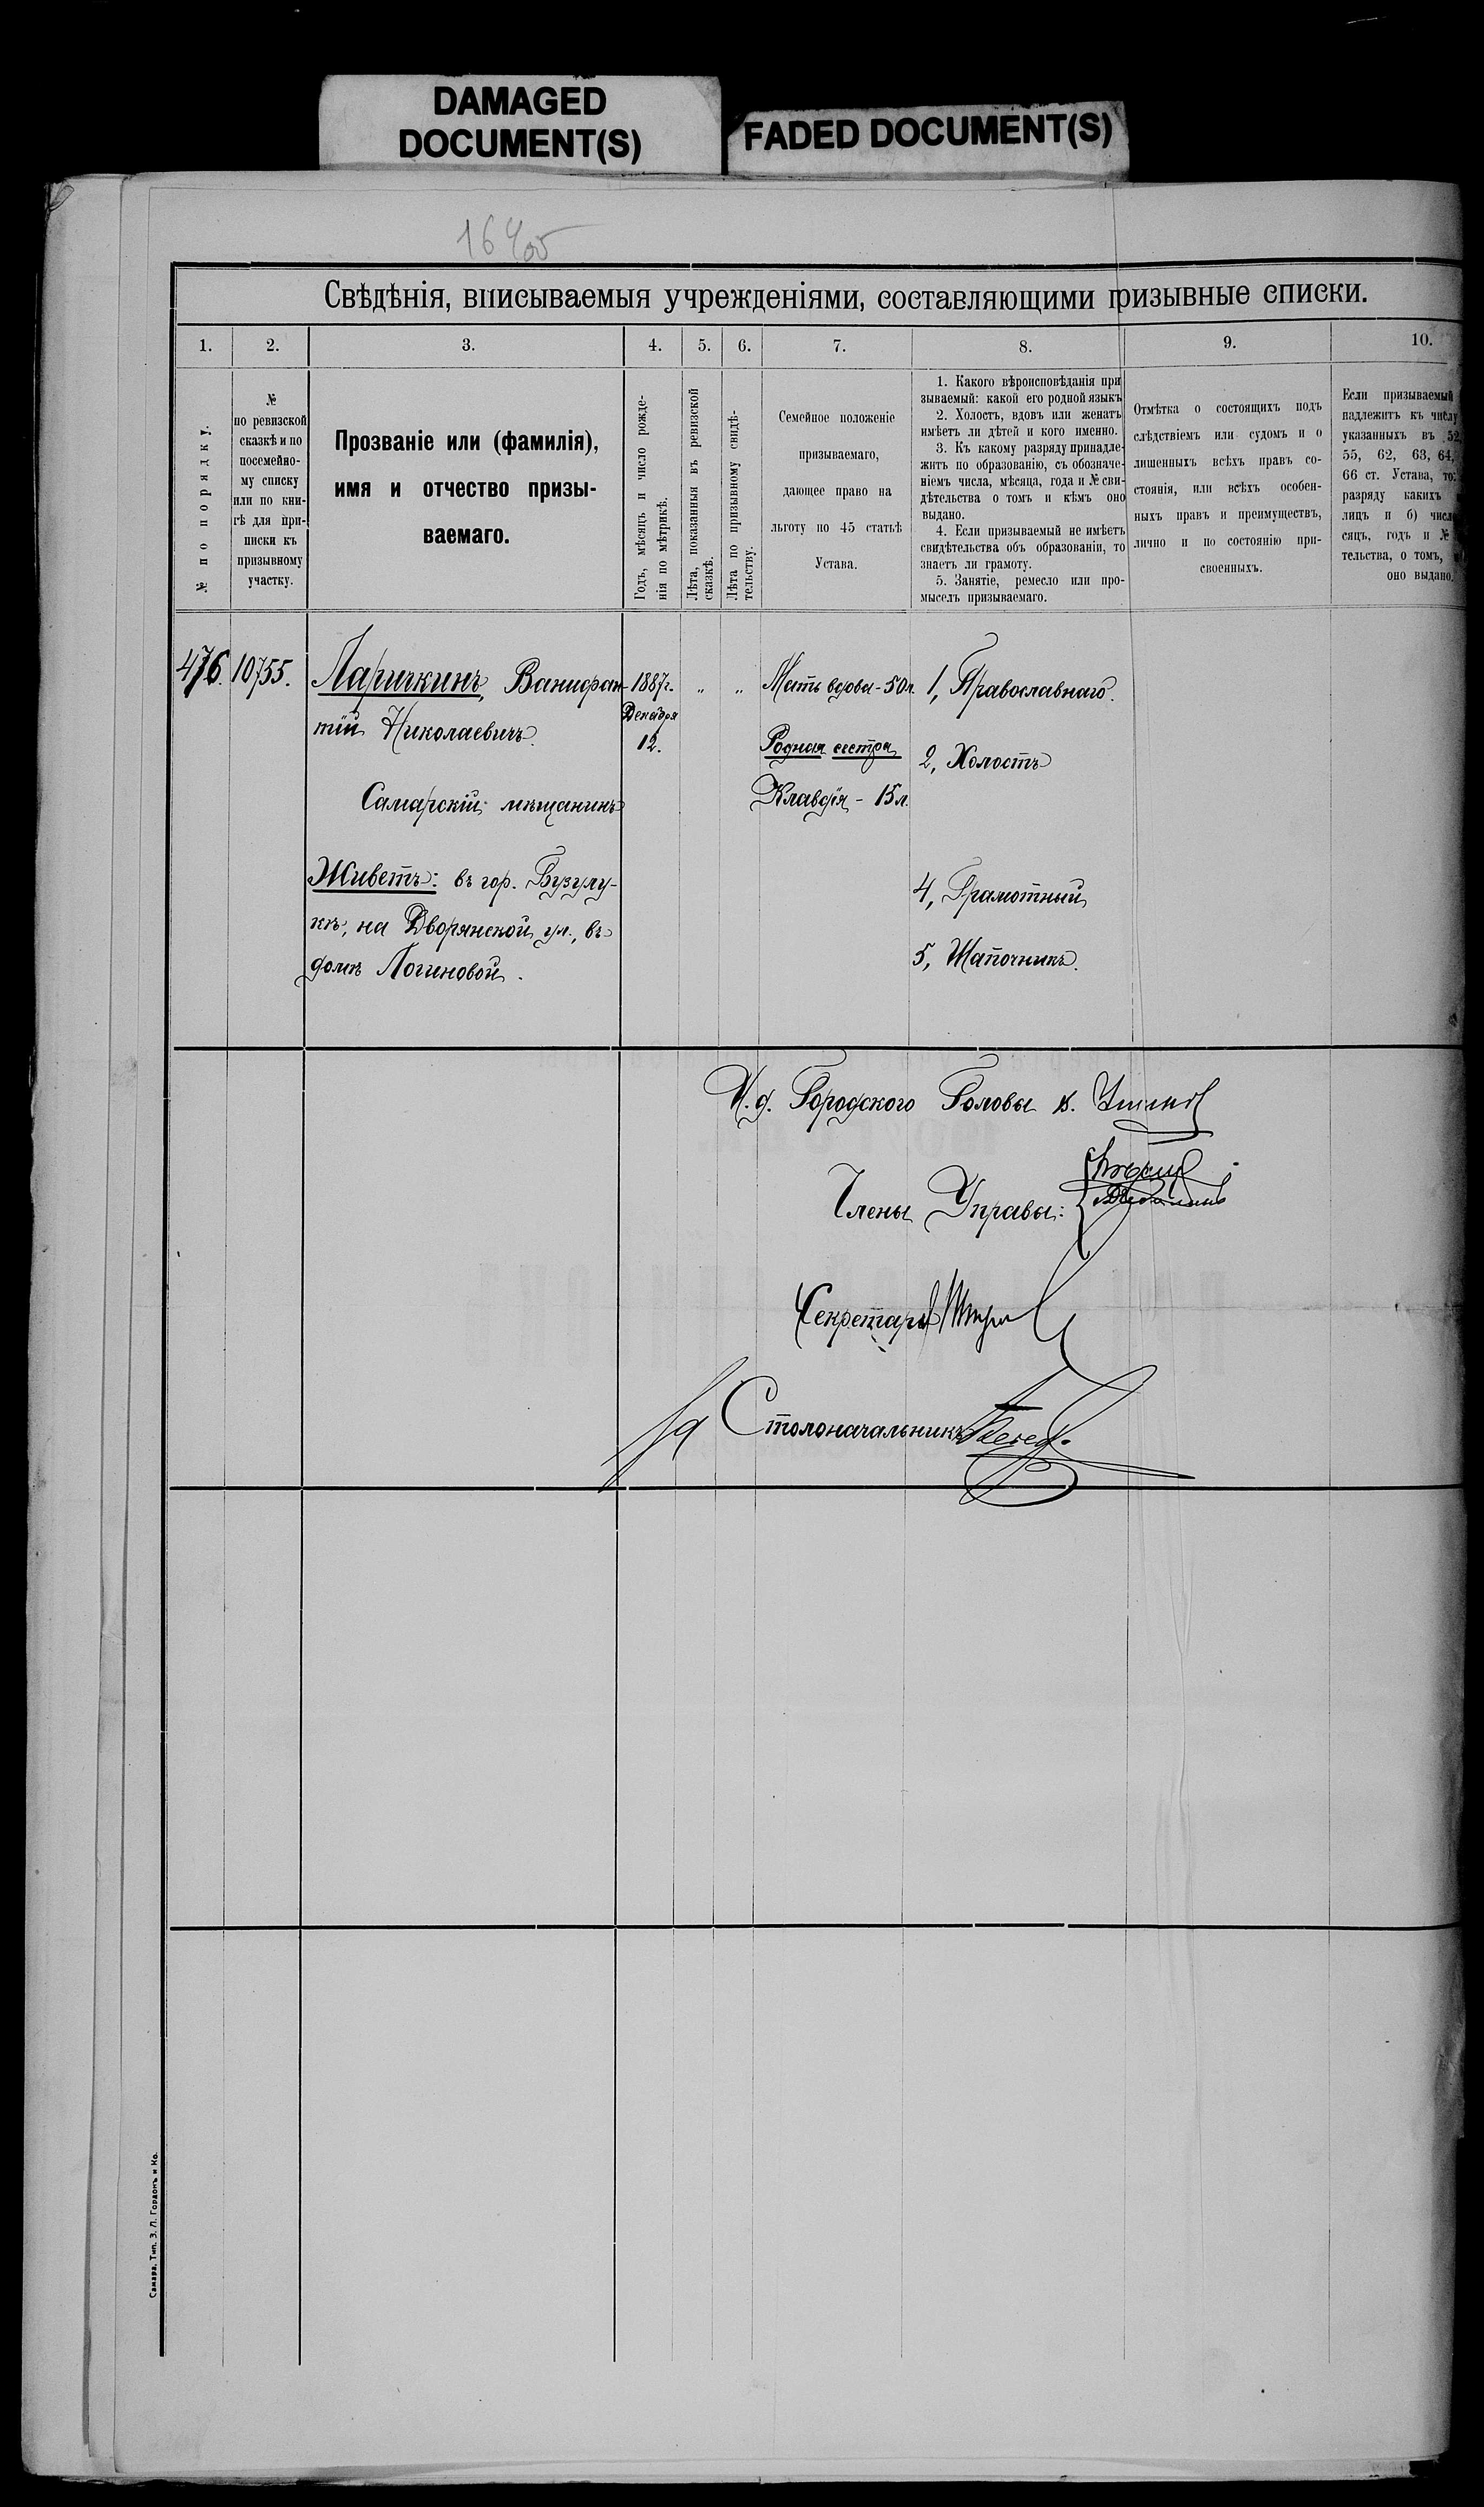 DAMAGED
DOCUMENT(S)
FADED DOCUMENT(S)
Свѣдѣнія, вписываемыя учрежденіями, составляющими призывные списки.
1. 2. 3. 4. 5. 6. 7. 8. 9. 10.
№ по порядку.
№
по ревизской
сказкѣ и по
посемейно-
му списку
или по кни-
гѣ для при-
писки къ
призывному
участку.
Прозваніе или (фамилія),
имя и отчество призы-
ваемаго.
Годъ, мѣсяцъ и число рожде-
нія по мѣтрикѣ.
Лѣта, показанныя въ ревизской
сказкѣ.
Лѣта по призывному свидѣ-
тельству.
Семейное положеніе
призываемаго,
дающее право на
льготу по 45 статьѣ
Устава.
1. Какого вѣроисповѣданія при
зываемый: какой его родной языкъ
2. Холостъ, вдовъ или женатъ
имѣетъ ли дѣтей и кого именно.
3. Къ какому разряду принадле-
житъ по образованію, съ обозначе-
ніемъ числа, мѣсяца, года и № сви-
дѣтельства о томъ и кѣмъ оно
выдано.
4. Если призываемый не имѣетъ
свидѣтельства объ образованіи, то
знаетъ ли грамоту.
5. Занятіе, ремесло или про-
мыселъ призываемаго.
Отмѣтка о состоящихъ подъ
слѣдствіемъ или судомъ и о
лишенныхъ всѣхъ правъ со-
стоянія, или всѣхъ особен-
ныхъ правъ и преимуществъ,
лично и по состоянію при-
своенныхъ.
Если призываемый
надлежитъ къ числу
указанныхъ въ 52,
55, 62, 63, 64,
66 ст. Устава, то:
разряду какихъ
лицъ и б) число
сяцъ, годъ и №
тельства, о томъ,
оно выдано.
476. 10755.
Ларичкинъ, Ванифан-
тій Николаевичъ.
Самарскій мѣщанинъ
Живетъ: въ гор. Бузулу-
кѣ, на Дворянской ул., въ
домѣ Логиновой.
1887г.
Декабря
12.
" "
Мать вдова - 50 л.
Родная сестра
Клавдія - 15 л.
1, Православнаго.
2, Холостъ
4, Грамотный
5, Шапочникъ.
И. д. Городского Головы
Члены Управы:
Секретарь
За Столоначальникъ
Самара, Тип. З. Л. Гордонъ и Ко.